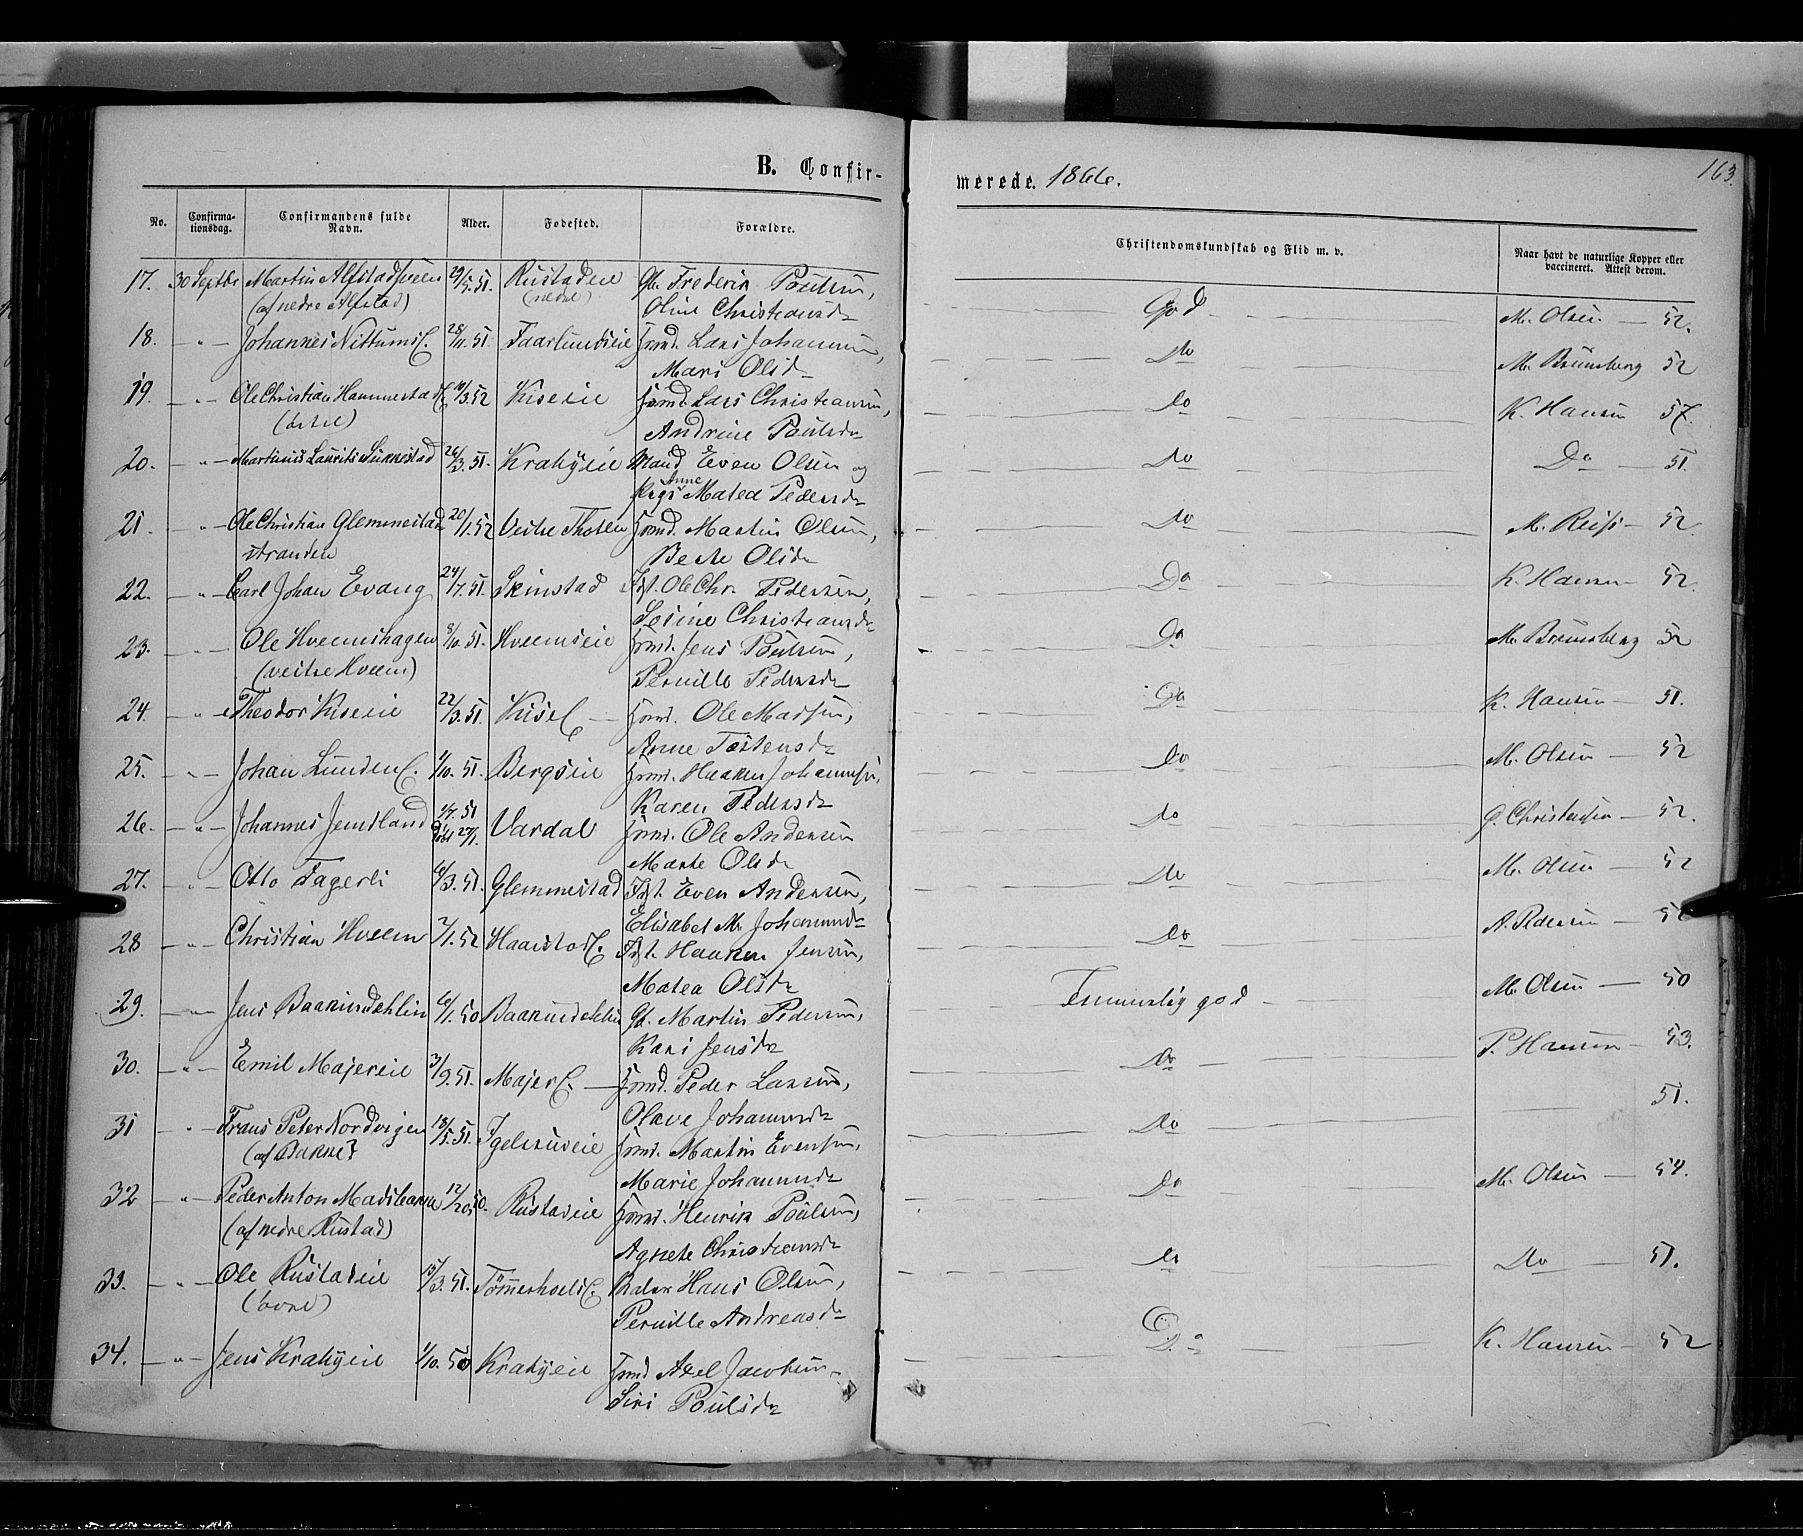 B. Confir-
merede. 1866.
163.
No. Confirma-tionsdag. Confirmandens fulde Navn. Alder. Fødested. Forældre. Christendomskundskab og Flid m. v. Naar havt de naturlige Kopper eller vaccineret. Attest derom.
17. 30 Septbr Martin Alfstad 29/5.51. Rustadeie Gb. Frederik Poulsen, God M. Olsen — 52.
(af nedre Alfstad) (nedre) Oline Christiansdr
18. — " — Johannes Nittums E. 28/11.51 Faarlundseie Hmd. Lars Johannesen, Do M. Brunsberg 52
Mari Olsdr
19. — " — Ole Christian Hammerstad E 10/3.52 Kiseeie Hmd. Lars Christiansen, Do K. Hansen 57.
(østre) Andrine Poulsdr
20. — " — Martinus Laurits Sunnestad 26/3.51. Krabyeie Mand Even Olsen og Do Do — 51.
Pige Anne Matea Pedersdr
21. — " — Ole Christian Glemmestad 20/1.52 Vestre Thoten Hmd. Martin Olsen, Do M. Reiss — 52
stranden Berte Olsdr
22. — " — Carl Johan Evang 24/7.51. Skinstad Ist. Ole Chr. Pedersen, Do K. Hansen — 52.
Sosine Christiansdr
23. — " — Ole Hveemshagen 8/10.51. Hveemseie Hmd. Jens Poulsen, Do M. Brunsberg 52
(vestre Hveem) Pernille Pedersdr
24. — " — Theodor Kiseeie 22/3.51. Kise E. Hmd. Ole Madsen, Do K. Hansen — 51.
Anne Tostensdr
25. — " — Johan Lunden E. 1/10.51. Bergseie Hmd. Haaken Johannesen, Do M. Olsen — 52
Karen Pedersdr
26. — " — Johannes Jemtland 1/7.51 Vardal Hmd. Ole Andersen Do G. Christensen — 52.
døbt 27/7. Marte Olsdr
27. — " — Otto Fagerli 6/3.51. Glemmestad Ist. Even Andersen, Do M. Olsen — 52
Elisabet M. Johannesdr
28 — " — Christian Hveem 7/1.52 Haarstad E. Ist. Haaken Jensen, Do A. Pedersen — 52
Matea Olsdr
29. — " — Jens Baarindehlin 6/1.50 Baarindehlin Gb. Martin Pedersen, Temmelig god M. Olsen — 50
Kari Jensdr
30. — " — Emil Majereie 3/9.51. Majer E. — Hmd. Peder Larsen, Do P. Hansen — 53.
Olave Johannesdr
31 — " — Frans Peter Nordvigen 18/5.51. Igelsrudeie Hmd. Martin Evensen, Do 51.
(af Bakke) Marie Johannesdr
32 — " — Peder Anton Madsbakke 12/12.50. Rustadeie Hmd. Henrik Poulsen, Do M. Olsen — 54.
(af nedre Rustad) Agnete Christiansdr
33. — " — Ole Rustadeie 15/3.51. Tømmerhoels E. Baker Hans Olsen, Do Do — 51.
(øvre) Pernille Andreasdr
34. — " — Jens Krabyeie 1/10.50 Krabyeie Hmd Axel Jacobsen Do K. Hansen — 52
Siri Poulsdr